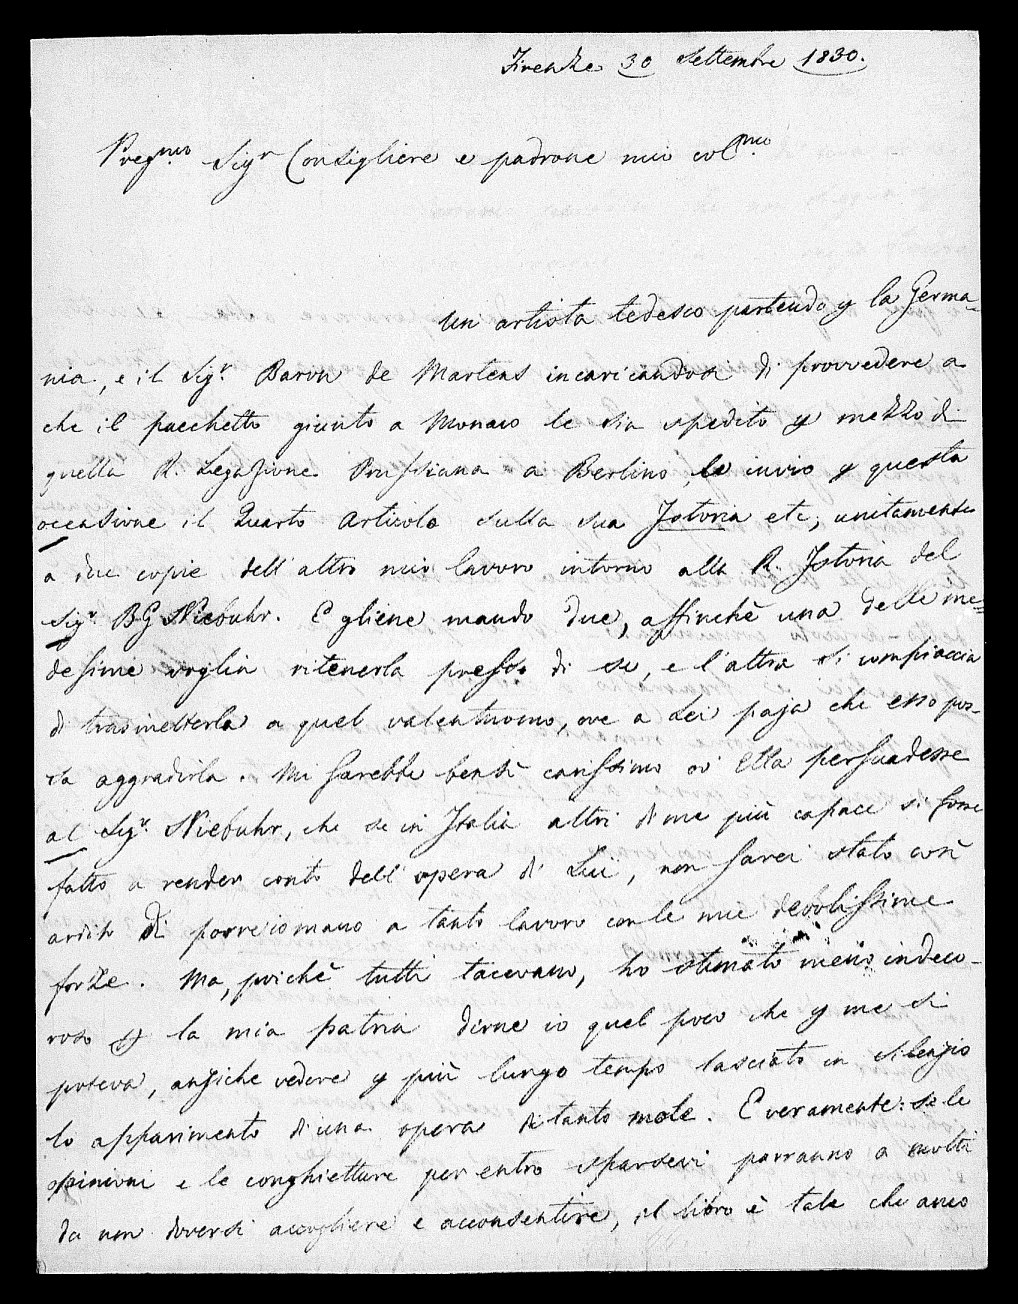 Firenze 30 Settembre 1830.
Pregmo Sigr Consigliere e padrone mio colmo
Un artista tedesco partendo p la Germa-
nia, e il Sigr. Baron de Martens incaricandosi di provvedere a
che il pacchetto giunto a Monaco le sia spedito p mezzo di
quella R. Legazione Prussiana a Berlino, le invio p questa
occasione il Quarto Articolo sulla sua Istoria etc, unitamente
a due copie dell'altro mio lavoro intorno alla R. Istoria del
Sigr. BG Niebuhr. E gliene mando due, affinchè una delle me-
desime voglia ritenerla presso di se, e l'altra si compiaccia
di trasmetterla a quel valentuomo, ove a Lei paja che esso pos-
sa aggradirla. Mi sarebbe bensì carissimo ov' Ella persuadesse
al Sigr. Niebuhr, che se in Italia altri di me più capace si fosse
fatto a render conto dell'opera di Lui, non sarei stato così
ardito di porre io mano a tanto lavoro con le mie debolissime
forze. Ma, poichè tutti tacevano, ho stimato meno indeco-
roso p la mia patria dirne io quel poco che p me si
poteva, anziche vedere p più lungo tempo lasciato in silenzio
lo apparimento di una opera di tanto mole. E veramente: se le
opinioni e le conghietture per entro sparsevi parranno a molti
da non doversi accogliere e acconsentire, il libro è tale che anco